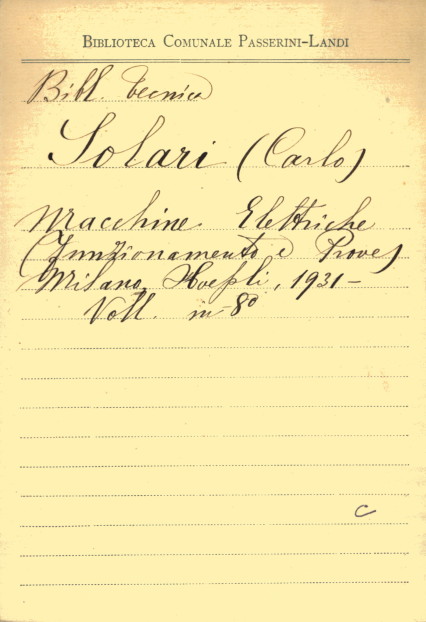 BIBLIOTECA COMUNALE PASSERINI-LANDI
Bibl. Tecnica
Solari (Carlo)
Macchine Elettriche
(Funzionamento e Prove)
Milano, Hoepli, 1931-
Voll. in-8º
C